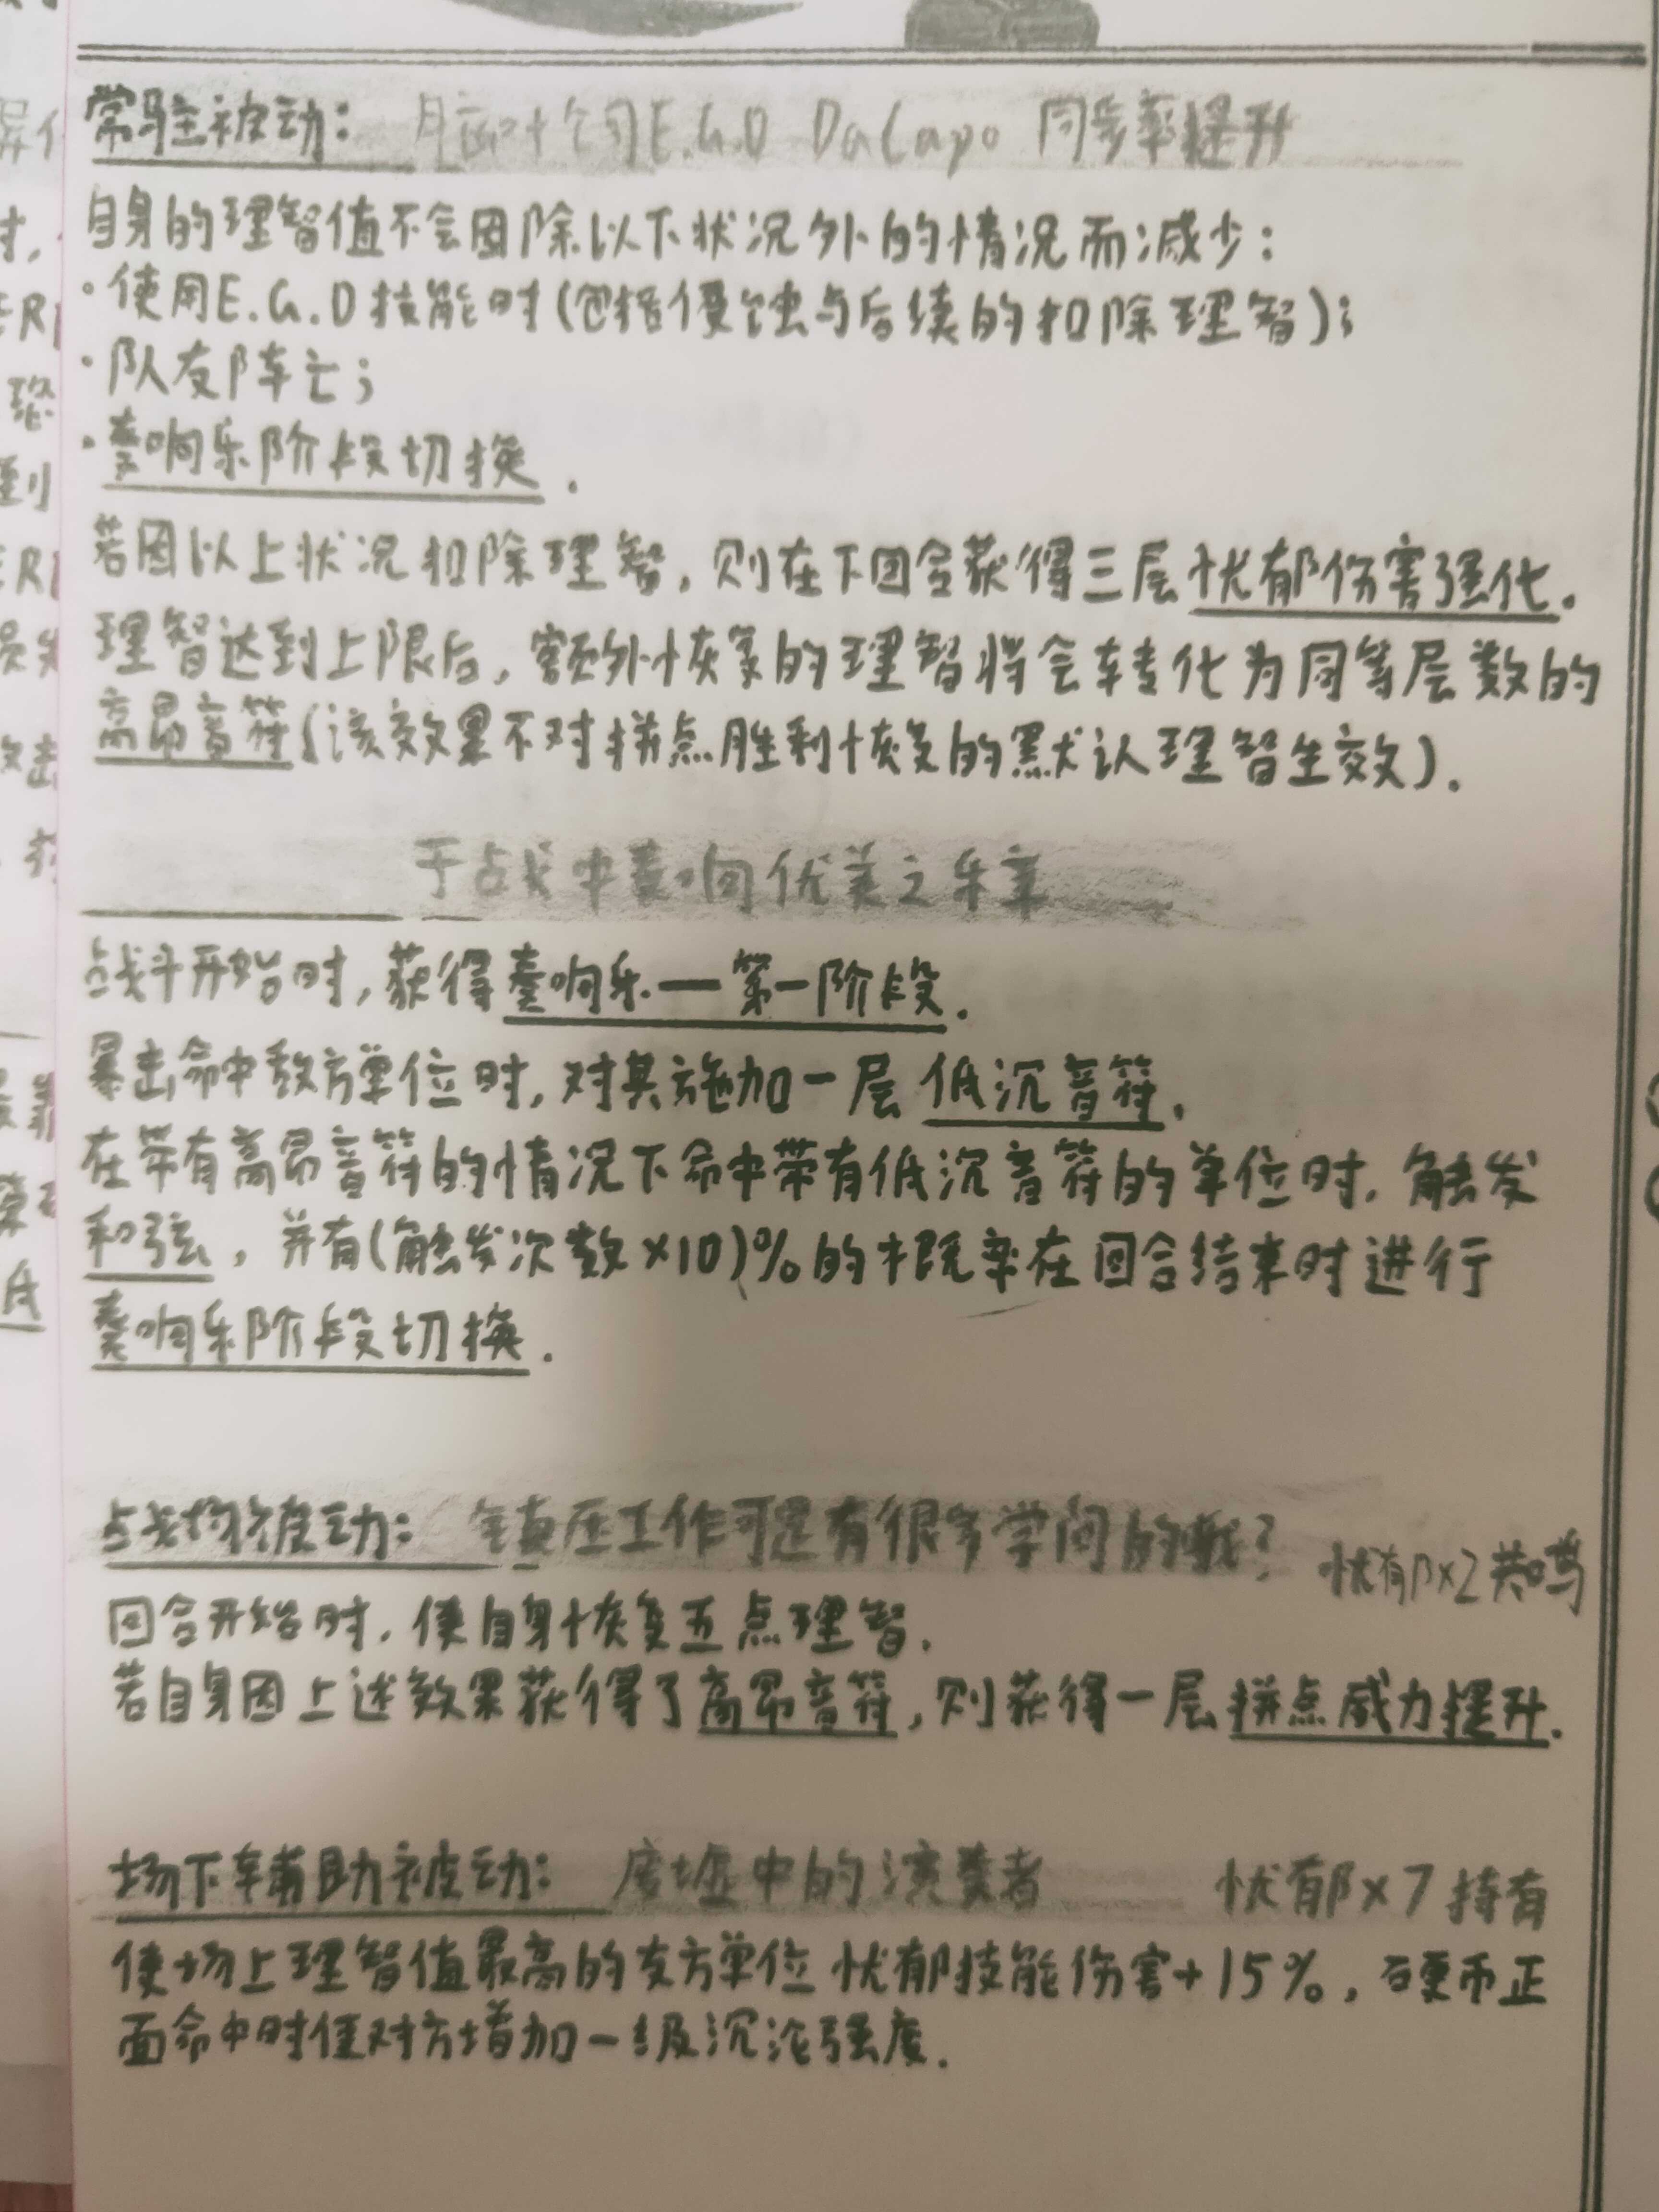 常驻被动： 脑叶公司E.G.O DaCapo 同步率提升
自身的理智值不会因除以下状况外的情况而减少：
·使用E.G.O技能时(包括侵蚀与后续的扣除理智)；
·队友阵亡；
·奏响乐阶段切换.
若因以上状况扣除理智,则在下回合获得三层忧郁伤害强化.
理智达到上限后,额外恢复的理智将会转化为同等层数的
高昂音符(该效果不对拼点胜利恢复的默认理智生效).
于战中奏响优美之乐章
战斗开始时,获得奏响乐—第一阶段.
暴击命中敌方单位时,对其施加一层低沉音符.
在带有高昂音符的情况下命中带有低沉音符的单位时,触发
和弦,并有(触发次数×10)%的概率在回合结束时进行
奏响乐阶段切换.
战场被动： 镇压工作可是有很多学问的哦? 忧郁×2共鸣
回合开始时,使自身恢复五点理智.
若自身因上述效果获得了高昂音符,则获得一层拼点威力提升.
场下辅助被动： 废墟中的演奏者 忧郁×7持有
使场上理智值最高的友方单位忧郁技能伤害+15%,硬币正
面命中时使对方增加一级沉沦强度.